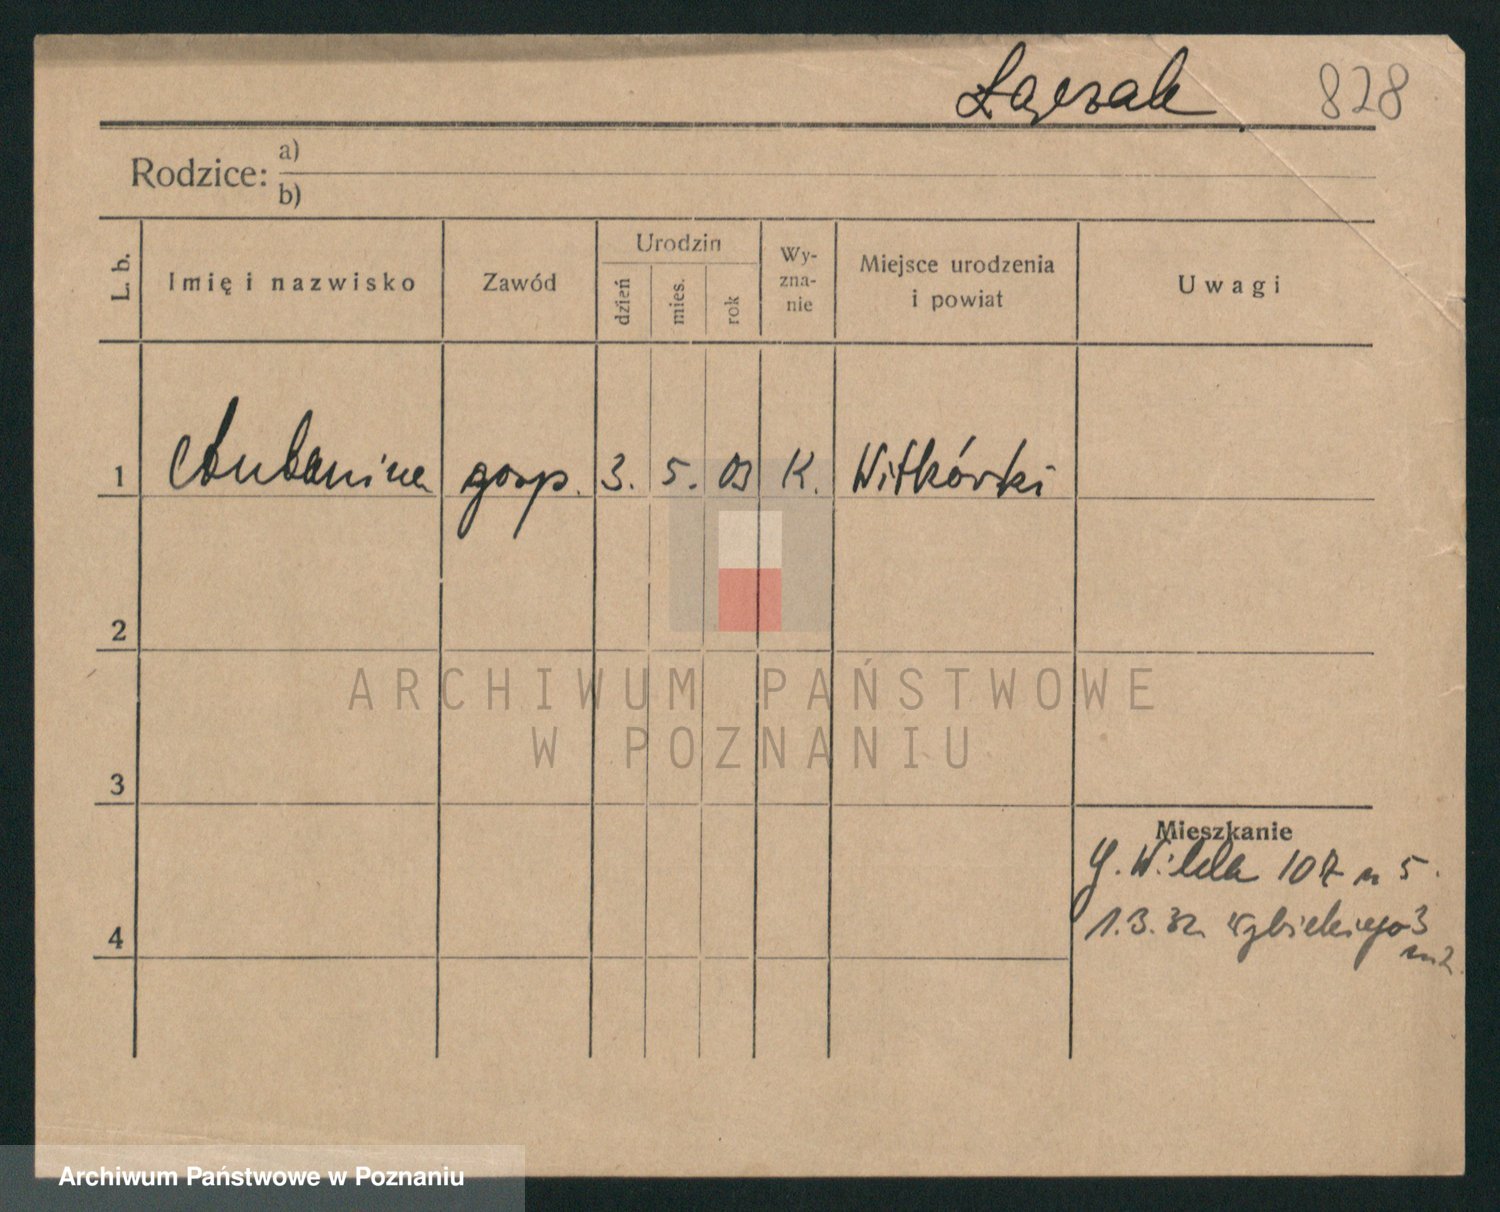 Łączak 828
Rodzice: a)
b)
L. b. Imię i nazwisko Zawód Urodzin dzień mies. rok Wy-zna-nie Miejsce urodzenia i powiat Uwagi
1 gosp. 3. 5. 03 K. Witkówki
2
ARCHIWUM PAŃSTWOWE
W POZNANIU
3
Mieszkanie
G. Wilda 107 m 5.
4 1.3.32 Wybickiego 3
m 2.
Archiwum Państwowe w Poznaniu